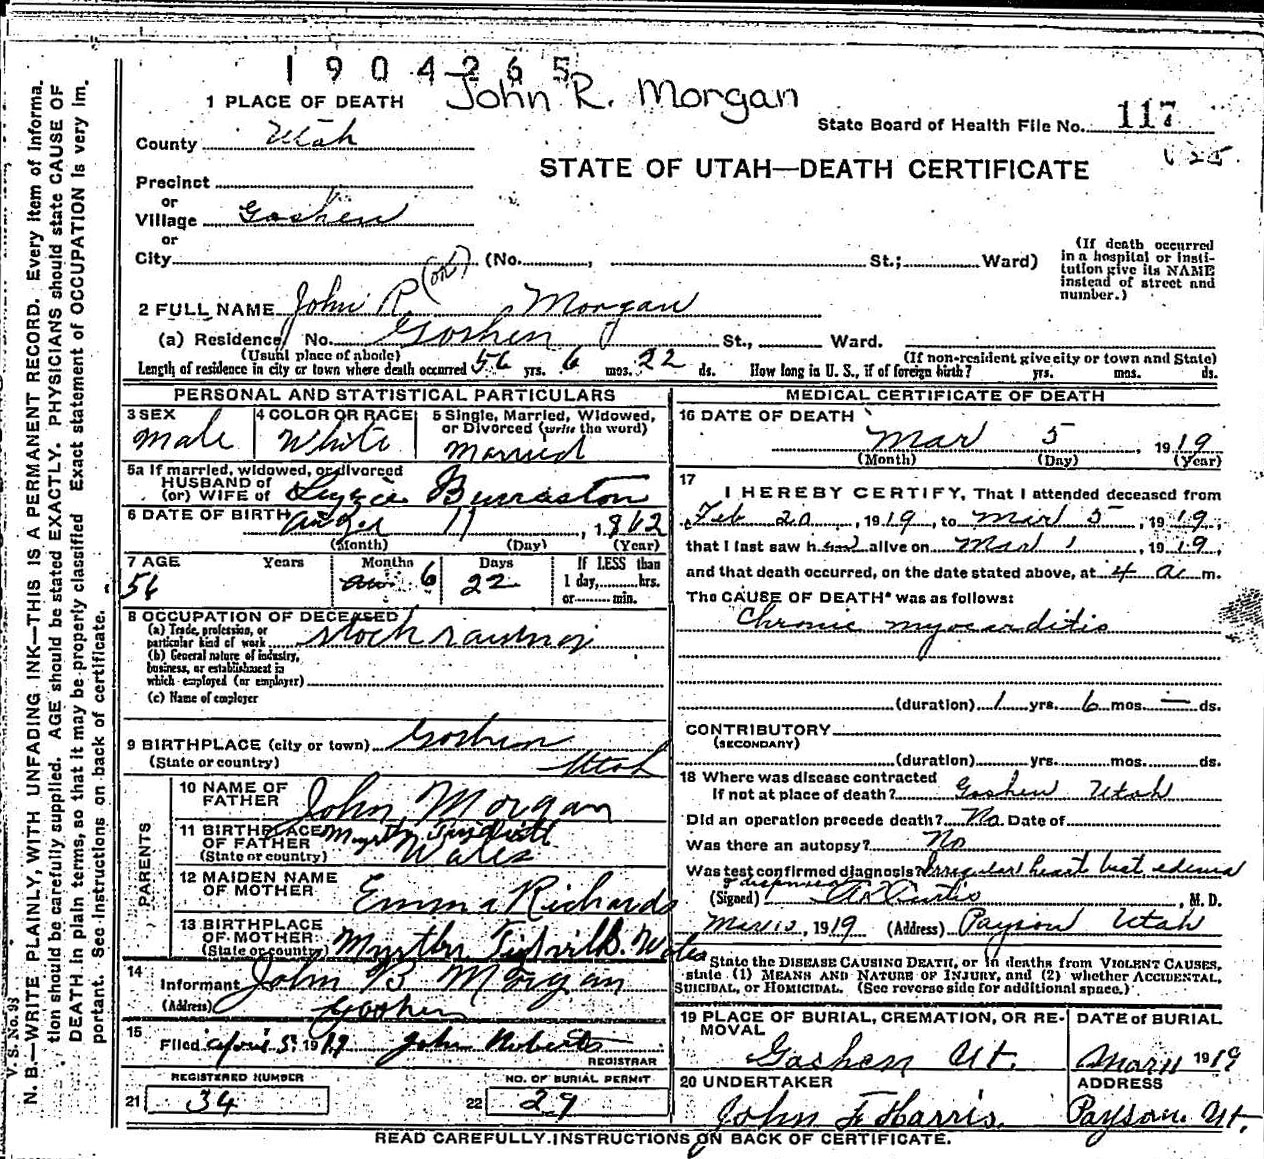 1904265
John R. Morgan
1 PLACE OF DEATH
State Board of Health File No. 117
County Utah
STATE OF UTAH—DEATH CERTIFICATE
Precinct
or
Village Goshen
or
City (No. , St.; Ward)
(If death occurred in a hospital or insti-
tution give its NAME
instead of street and
number.)
2 FULL NAME John R Morgan
(a) Residence, No. Goshen St., Ward.
(Usual place of abode) (If non-resident give city or town and State)
Length of residence in city or town where death occurred 56 yrs. 6 mos. 22 ds. How long in U. S., if of foreign birth? yrs. mos. ds.
PERSONAL AND STATISTICAL PARTICULARS
3 SEX
Male
4 COLOR OR RACE
White
5 Single, Married, Widowed,
or Divorced (write the word)
Married
5a If married, widowed, or divorced
HUSBAND of
(or) WIFE of Lizzie Burraston
6 DATE OF BIRTH 11, 1862
(Month) (Day) (Year)
7 AGE Years Months Days If LESS than
56 6 22 1 day, hrs.
or min.
8 OCCUPATION OF DECEASED
(a) Trade, profession, or
particular kind of work stock
(b) General nature of industry,
business, or establishment in
which employed (or employer)
(c) Name of employer
9 BIRTHPLACE (city or town) Goshen
(State or country) Utah
PARENTS
10 NAME OF
FATHER John Morgan
11 BIRTHPLACE
OF FATHER
(State or country) Wales
12 MAIDEN NAME
OF MOTHER Emma Richards
13 BIRTHPLACE
OF MOTHER
(State or country)
14
Informant John B Morgan
(Address) Goshen
15
Filed April 5, 1919 John Roberts
REGISTRAR
REGISTERED NUMBER
21 34
NO. OF BURIAL PERMIT
22 29
MEDICAL CERTIFICATE OF DEATH
16 DATE OF DEATH
Mar 5 1919
(Month) (Day) (Year)
17
I HEREBY CERTIFY, That I attended deceased from
Feb 20, 1919, to Mar 5, 1919,
that I last saw him alive on Mar 1, 1919,
and that death occurred, on the date stated above, at 4 a m.
The CAUSE OF DEATH* was as follows:
Chronic myocarditis
(duration) 1 yrs. 6 mos. — ds.
CONTRIBUTORY
(SECONDARY)
(duration) yrs. mos. ds.
18 Where was disease contracted
If not at place of death? Goshen Utah
Did an operation precede death? No Date of
Was there an autopsy? No
Was test confirmed diagnosis? Irregular heart beat edema
(Signed) Curtis, M. D.
1919 (Address) Payson Utah
State the DISEASE CAUSING DEATH, or in deaths from VIOLENT CAUSES,
state (1) MEANS AND NATURE OF INJURY, and (2) whether ACCIDENTAL,
SUICIDAL, or HOMICIDAL. (See reverse side for additional space.)
19 PLACE OF BURIAL, CREMATION, OR RE-
MOVAL
Goshen Ut.
DATE of BURIAL
Mar 11 1919
20 UNDERTAKER
John F Harris.
ADDRESS
Payson. Ut.
READ CAREFULLY INSTRUCTIONS ON BACK OF CERTIFICATE.
V. S. No. 93
N. B.—WRITE PLAINLY, WITH UNFADING INK—THIS IS A PERMANENT RECORD. Every item of informa-
tion should be carefully supplied. AGE should be stated EXACTLY. PHYSICIANS should state CAUSE OF
DEATH in plain terms, so that it may be properly classified. Exact statement of OCCUPATION is very im-
portant. See instructions on back of certificate.